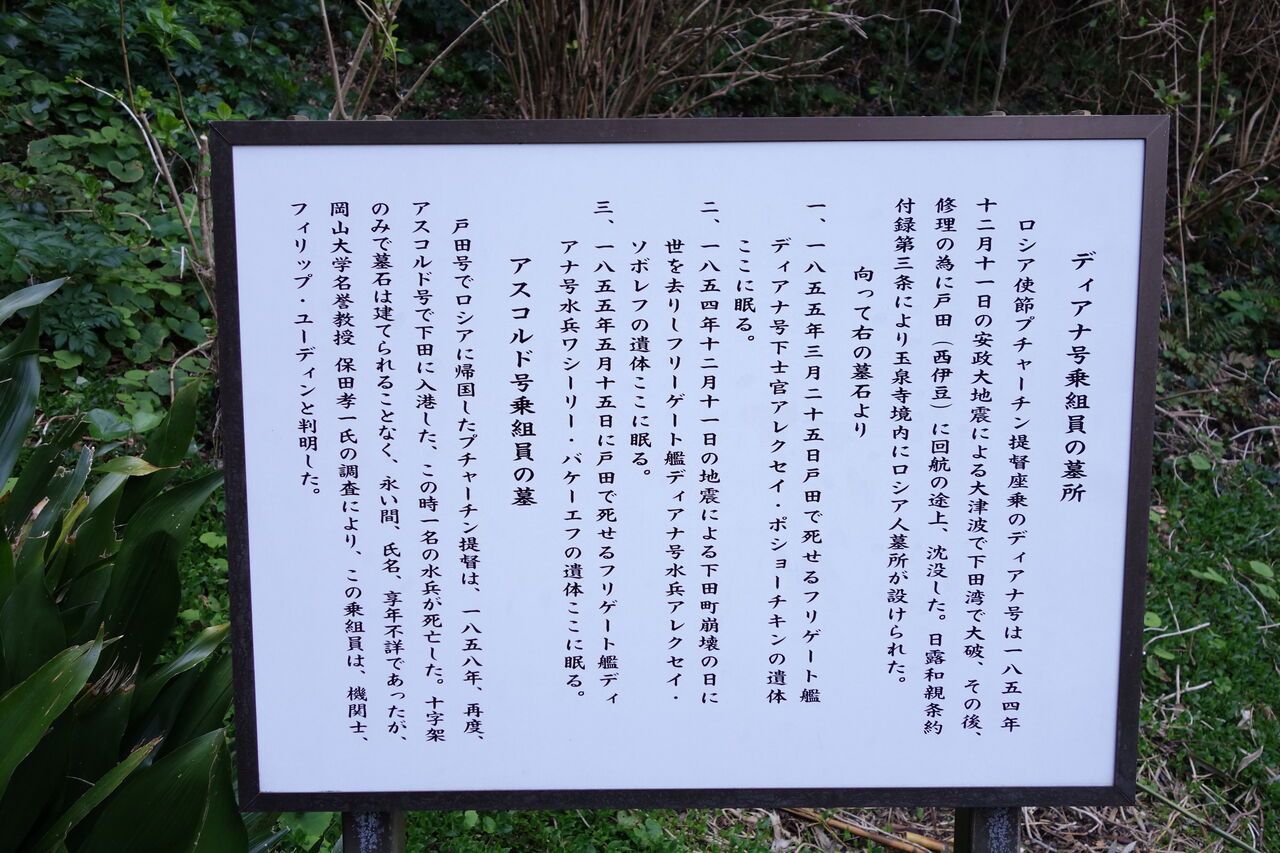 ディアナ号乗組員の墓所
ロシア使節プチャーチン提督座乗のディアナ号は一八五四年
十二月十一日の安政大地震による大津波で下田湾で大破、その後、
修理の為に戸田（西伊豆）に回航の途上、沈没した。日露和親条約
付録第三条により玉泉寺境内にロシア人墓所が設けられた。
向って右の墓石より
一、一八五五年三月二十五日戸田で死せるフリゲート艦
ディアナ号下士官アレクセイ・ポショーチキンの遺体
ここに眠る。
二、一八五四年十二月十一日の地震による下田町崩壊の日に
世を去りしフリーゲート艦ディアナ号水兵アレクセイ・
ソボレフの遺体ここに眠る。
三、一八五五年五月十五日に戸田で死せるフリゲート艦ディ
アナ号水兵ワシーリー・バケーエフの遺体ここに眠る。
アスコルド号乗組員の墓
戸田号でロシアに帰国したプチャーチン提督は、一八五八年、再度、
アスコルド号で下田に入港した、この時一名の水兵が死亡した。十字架
のみで墓石は建てられることなく、永い間、氏名、享年不詳であったが、
岡山大学名誉教授 保田孝一氏の調査により、この乗組員は、機関士、
フィリップ・ユーディンと判明した。